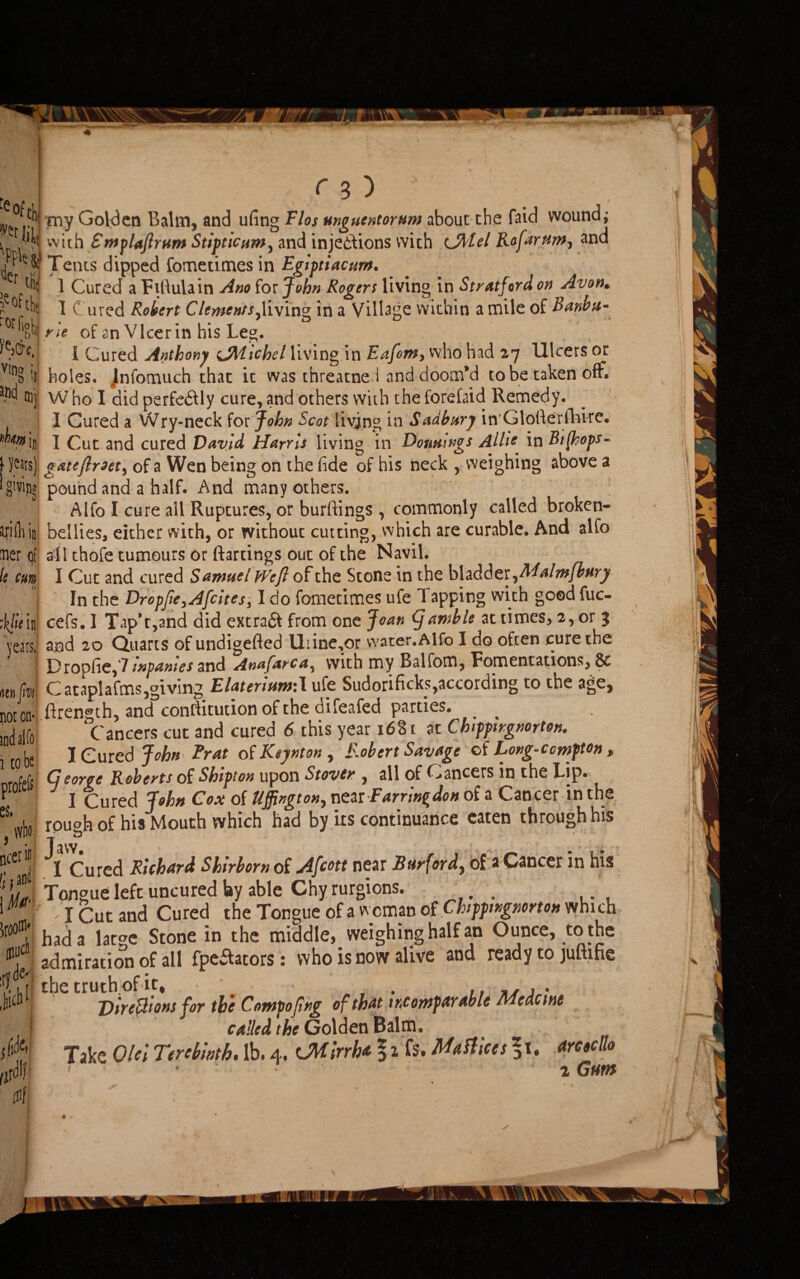 ( 3 )
my Golden Balm, and uſing Flos unguentorum about the ſaid wound;
with Emplaſtrum Stipticum, and injections with Mel Roſarum, and
Tents dipped ſometimes in Egiptiacum.
I Cured a Fiſtula in Ano for John Rogers living in Stratford on Avon.
I Cured Robert Clements, living in a Village within a mile of Banbu-
rie of an Vlcer in his Leg.
I Cured Anthony Michel living in Eaſom, who had 27 Ulcers or
holes. Inſomuch that it was threatned and doom'd to be taken off.
Who I did perfectly cure, and others with the foreſaid Remedy.
I Cured a Wry-neck for John Scot living in Sadbury in Gloſterſhire.
I Cut and cured David Harris living in Dounings Allie in Biſhops-
gateſtreet, of a Wen being on the ſide of his neck, weighing above a
pound and a half. And many others.
Alſo I cure all Ruptures, or burſtings, commonly called broken-
bellies, either with, or without cutting, which are curable. And alſo
all thoſe tumours or ſtartings out of the Navil.
I Cut and cured Samuel Weſt of the Stone in the bladder, Malmſbury
In the Dropſie, Aſcites, I do ſometimes uſe Tapping with good ſuc-
ceſs. I Tap't, and did extract from one Joan Gamble at times, 2, or 3
and 20 Quarts of undigeſted Urine, or water. Alſo I do often cure the
Dropſie, Timpanies and Anaſarca, with my Balſom, Fomentations, &
Cataplaſms, giving Elaterium: I uſe Sudorificks, according to the age,
ſtrength, and conſtitution of the diſeaſed parties.
Cancers cut and cured 6 this year 1681 at Chippirgnorton.
I Cured John Prat of Keynton, Robert Savage of Long-compton,
George Roberts of Shipton upon Stover, all of Cancers in the Lip.
I Cured John Cox of Uffington, near Farringdon of a Cancer in the
rough of his Mouth which had by its continuance eaten through his
Jaw.
I Cured Richard Shirborn of Aſcott near Burford, of a Cancer in his
Tongue left uncured by able Chyrurgions.
I Cut and Cured the Tongue of a woman of Chippingnorton which
had a large Stone in the middle, weighing half an Ounce, to the
admiration of all ſpectators: who is now alive and ready to juſtifie
the truth of it.
Directions for the Compoſing of that incomparable Medcine
called the Golden Balm.
Take Olei Terebinth. lb. 4. Mirrhæ ℥2 ſs. Maſtices ℥1.
2 Gum